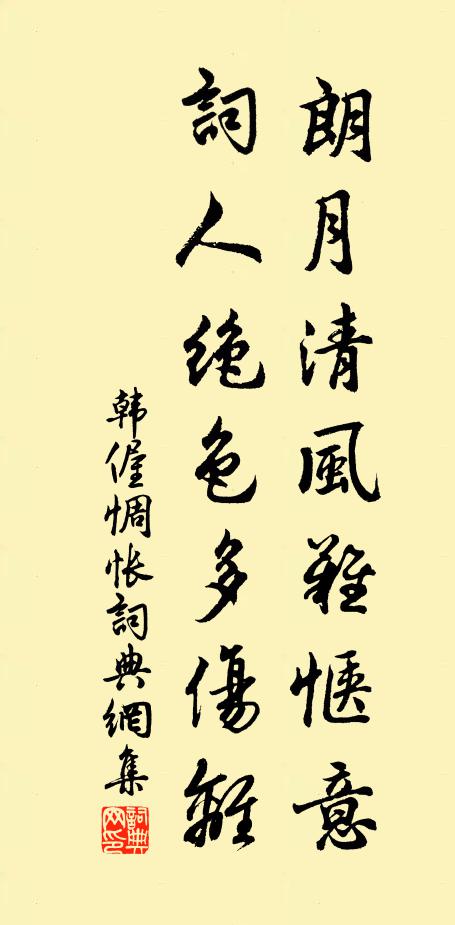 朗月清風難愜意
詞人絶色多傷離
韩偓惆怅詞典網集
詞典網印